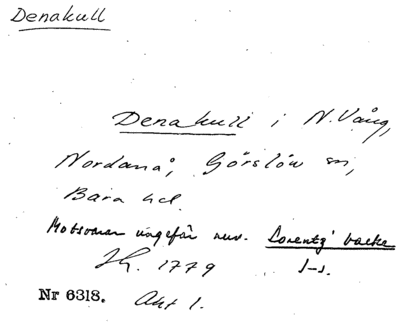 Denakull
Denakull i N. Vång,
Nordanå, Görslöv sn,
Bara hd.
Motsvarar ungefär nuv. Lorentz' backe
Jh. 1779 I-1.
Nr 6318. Akt 1.